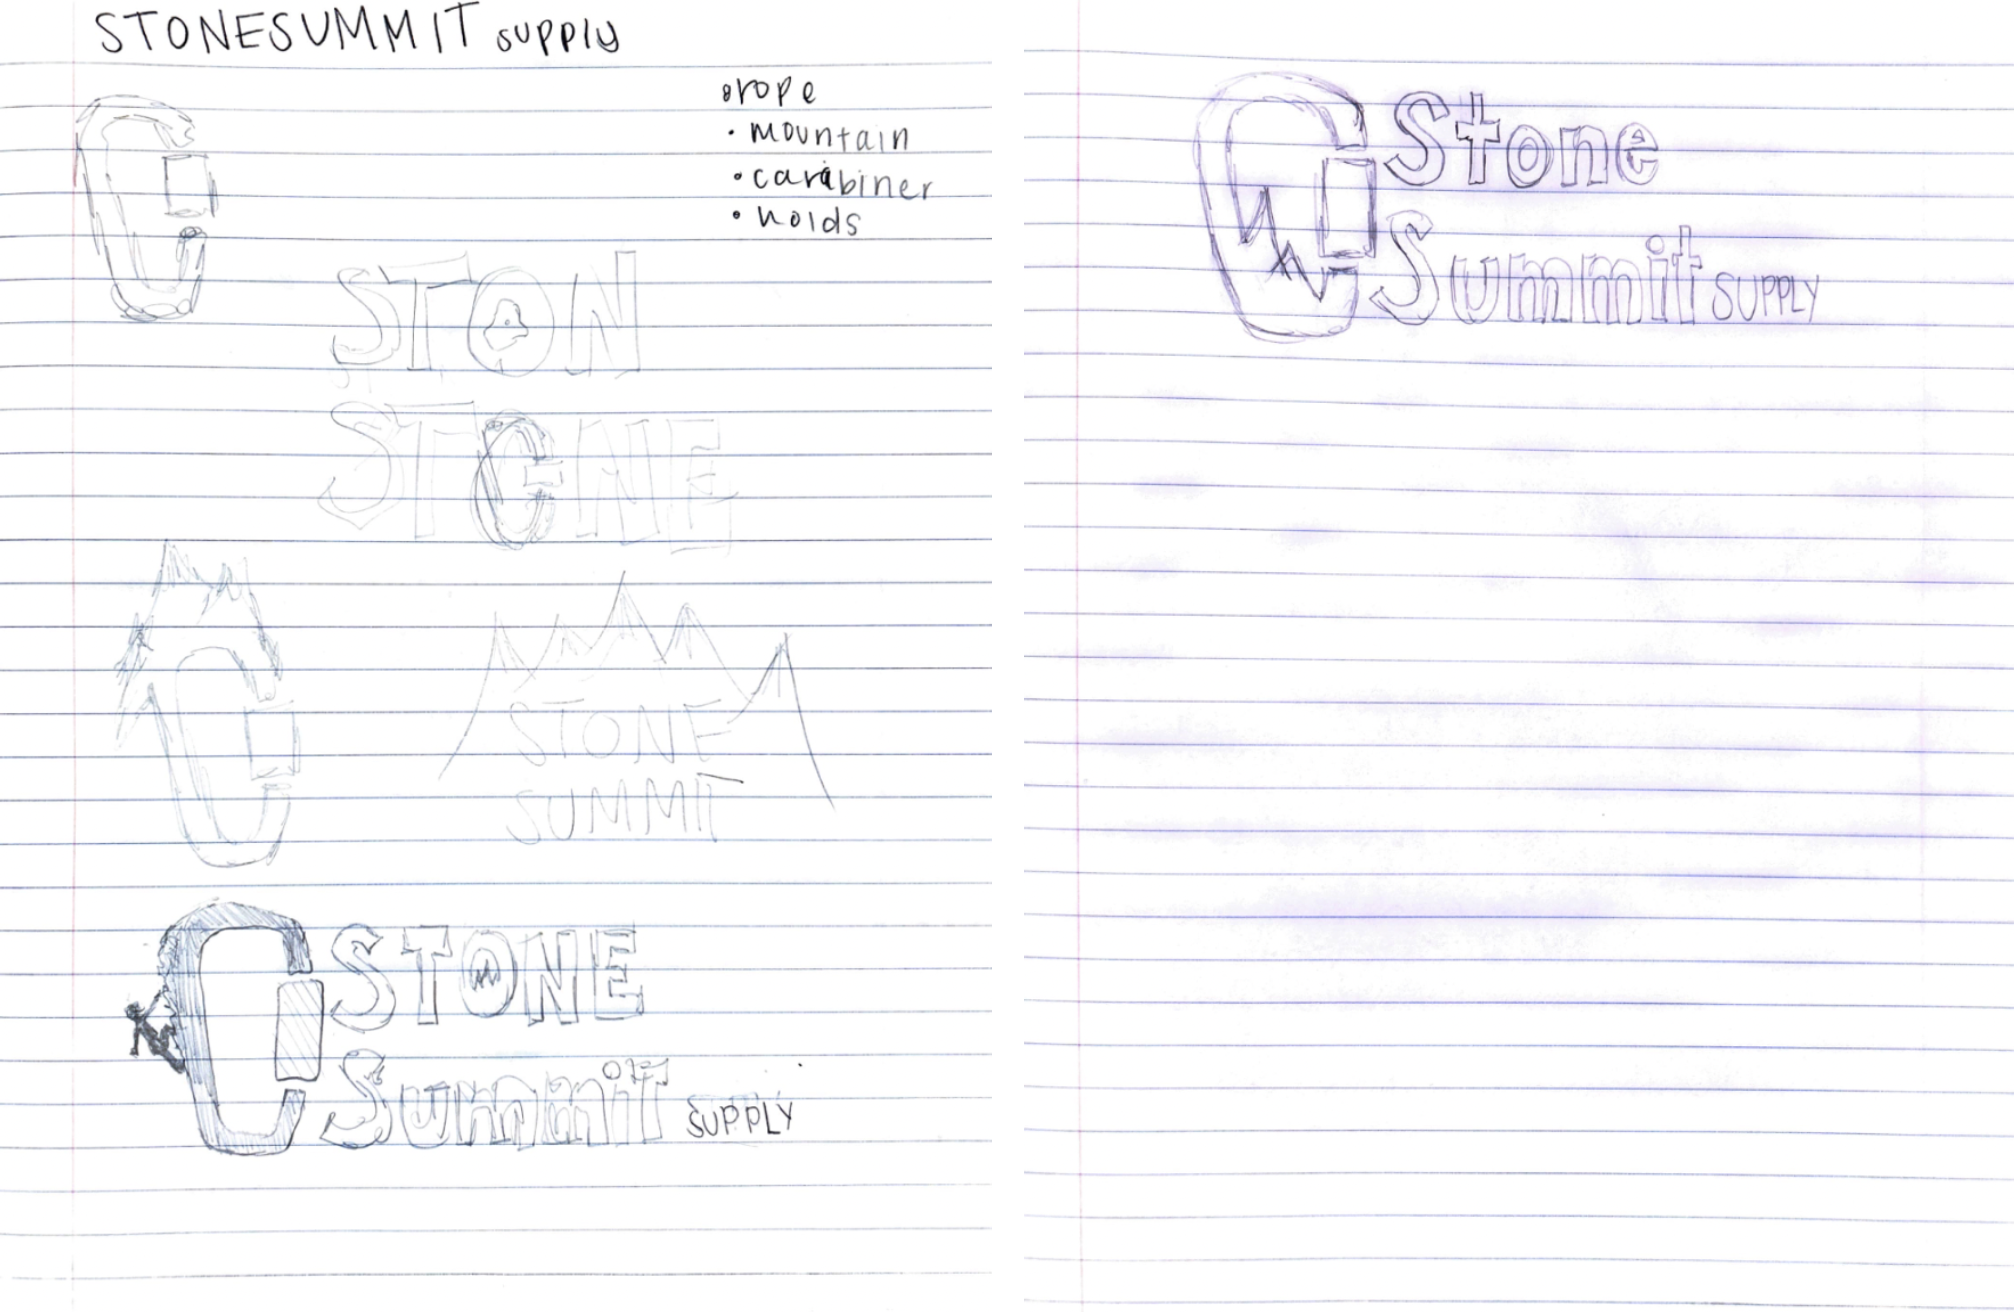 STONESUMMIT supply
• rope
• mountain
• carabiner
• holds
STON
STONE
STONE
SUMMIT
STONE
Summit SUPPLY
Stone
Summit SUPPLY